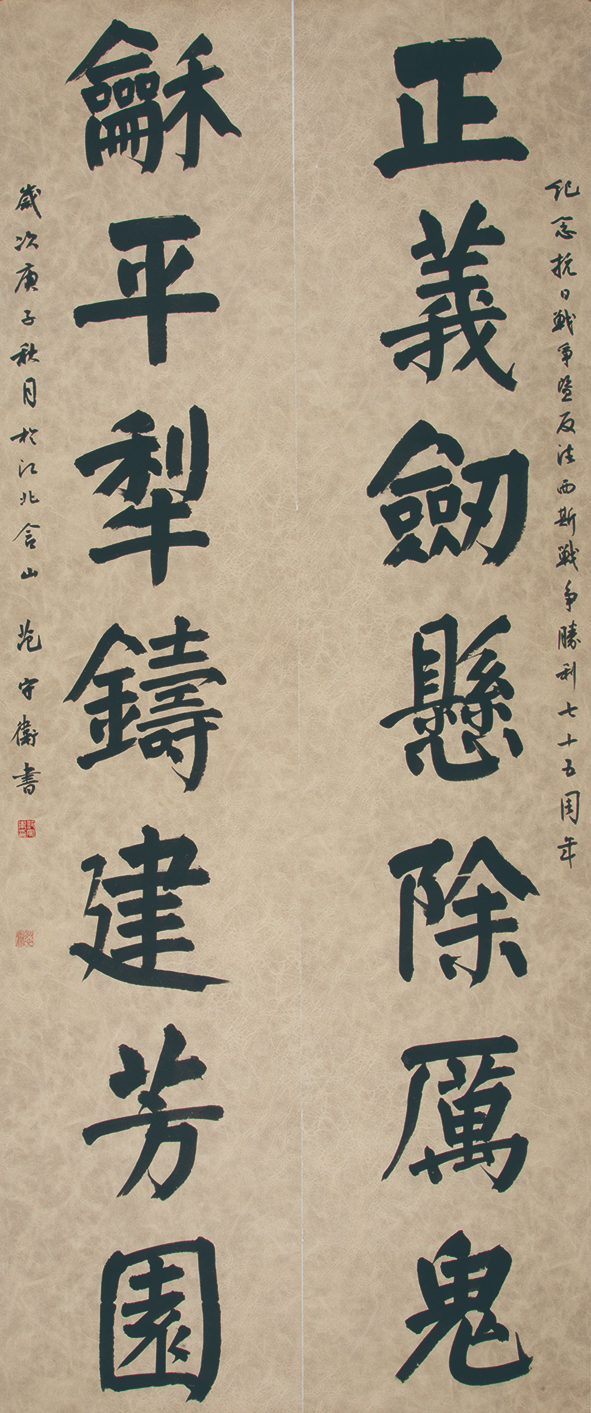 纪念抗日戰爭暨反法西斯戰争勝利七十五周年
正義劔懸除厲鬼
龢平犁鑄建芳園
歲次庚子秋月於江北含山 范守衛書